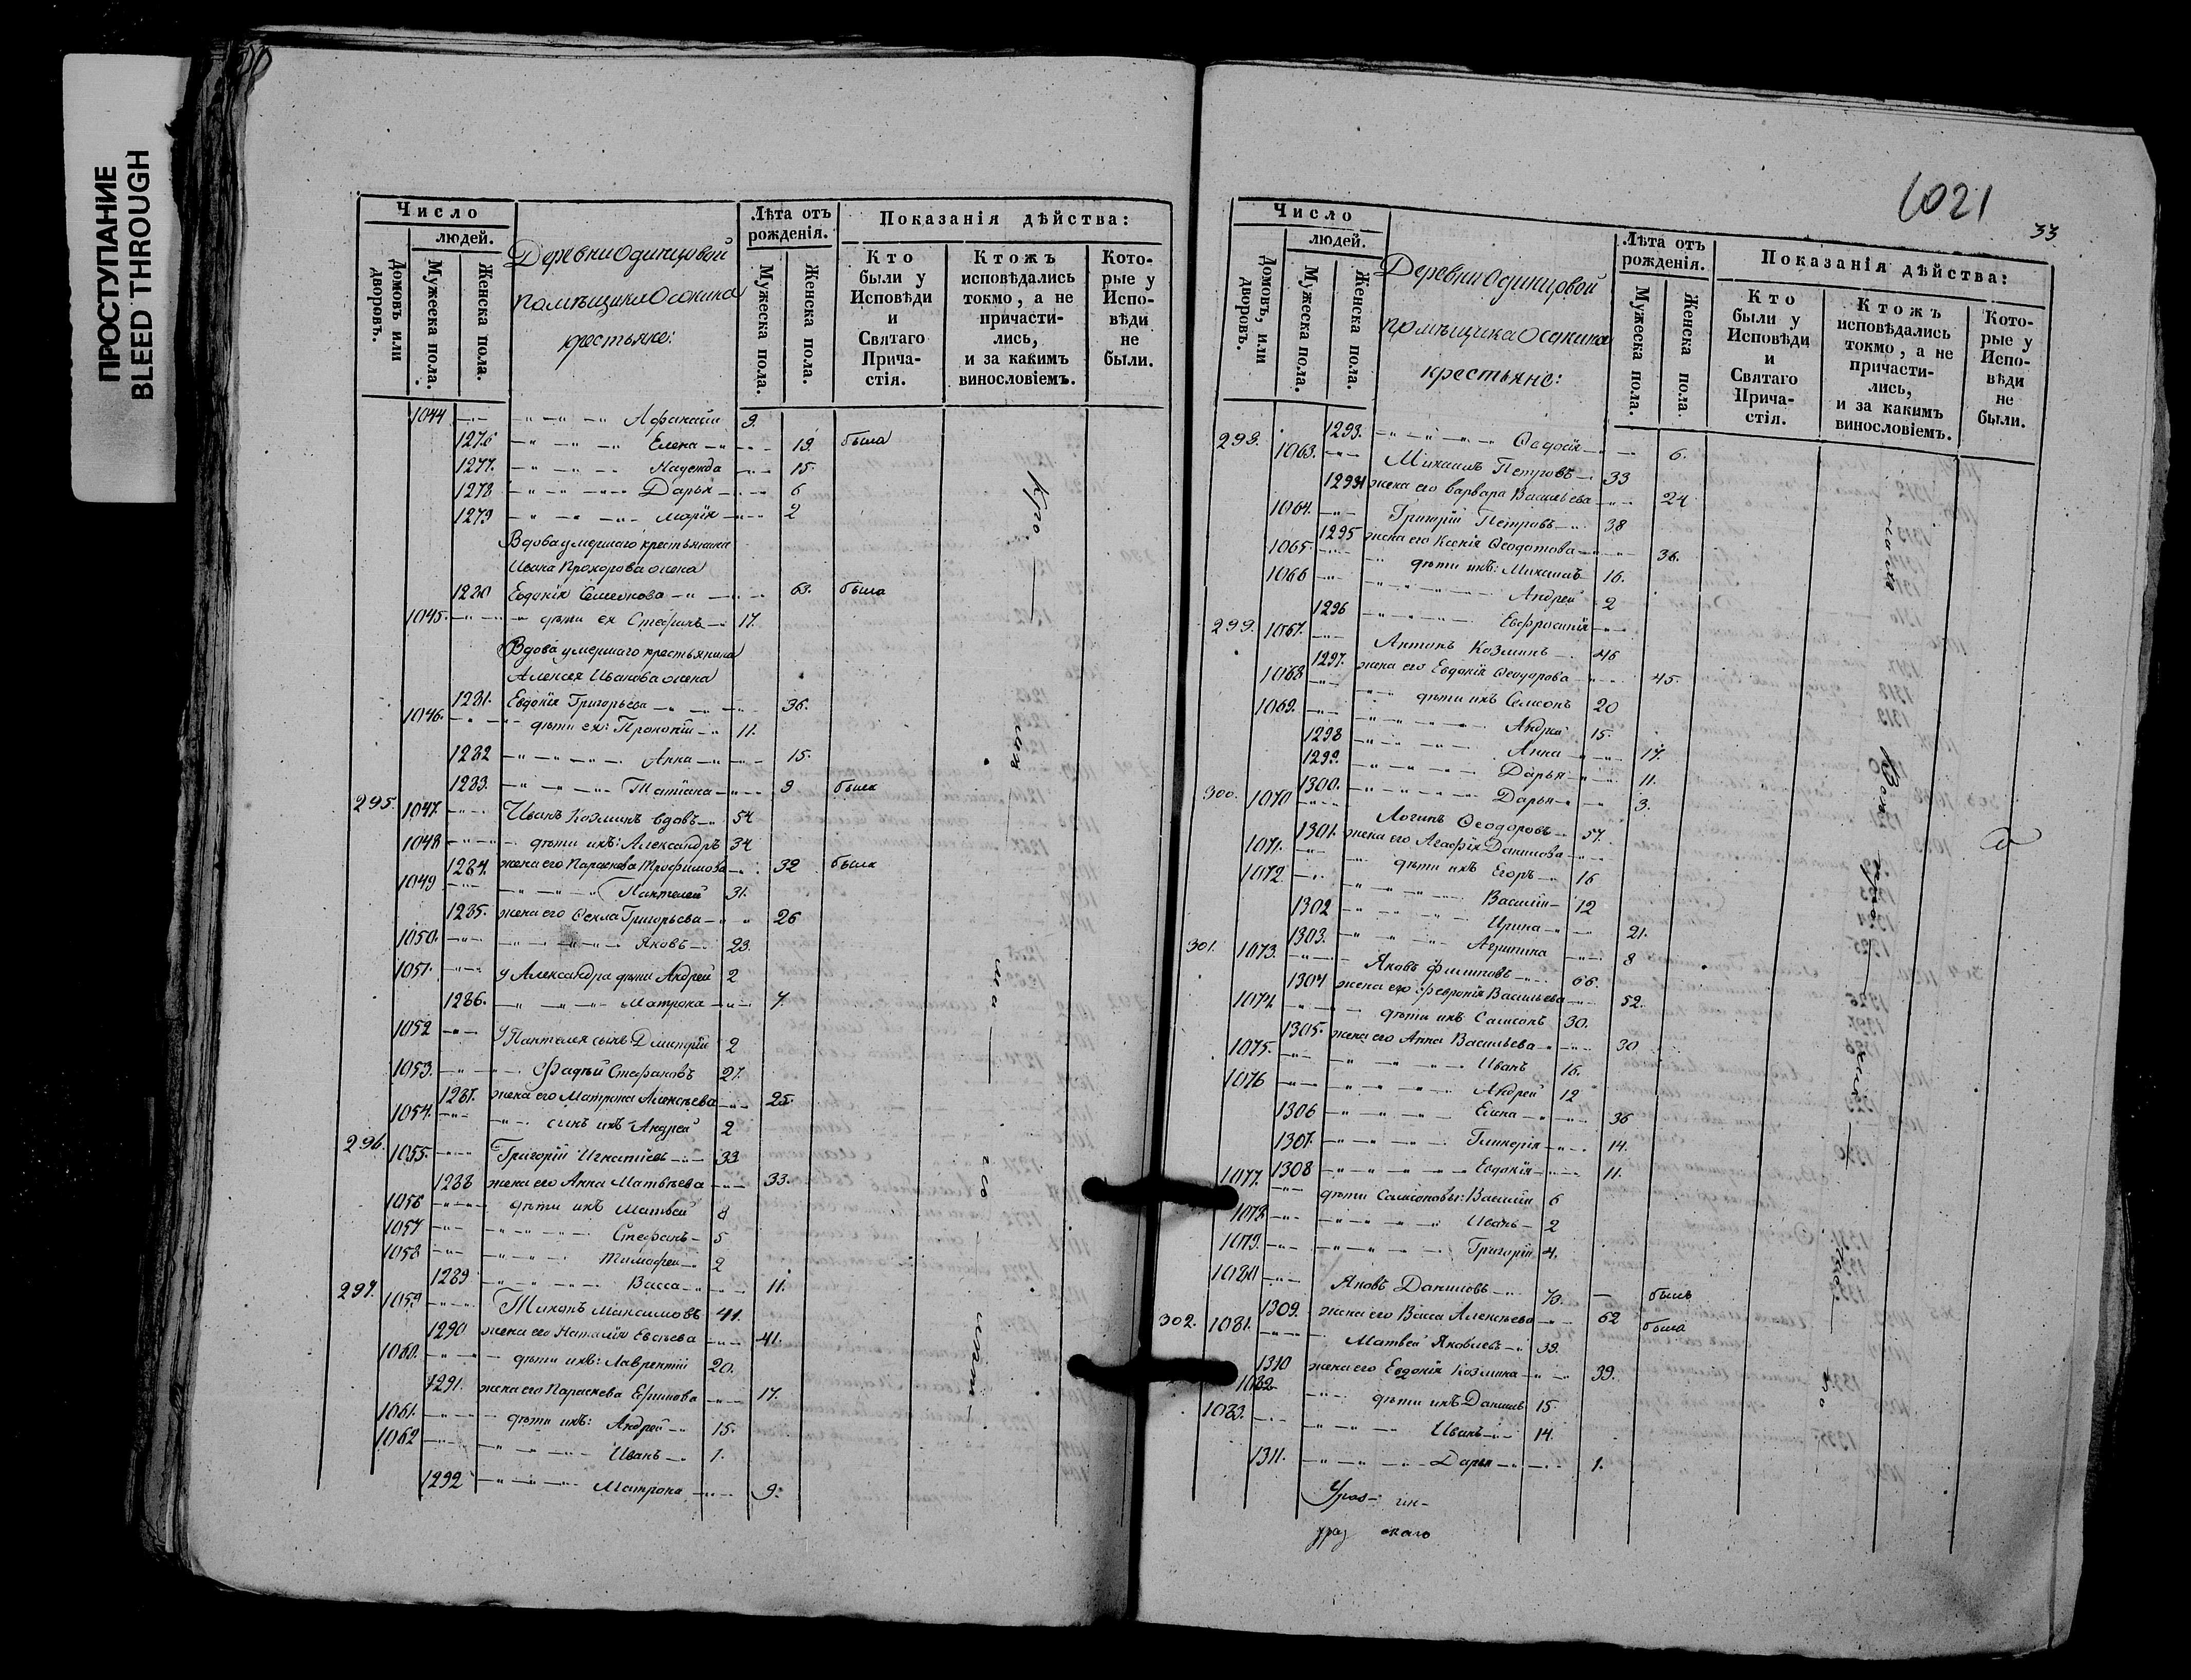 ПРОСТУПАНИЕ
BLEED THROUGH
Число
людей.
Домовъ или дворовъ.
Мужеска пола.
Женска пола.
Деревни Одинцовой
помѣщика Осокина
крестьяне:
Лѣта отъ рожденія.
Мужеска пола.
Женска пола.
Показанія дѣйства:
Кто были у Исповѣди и Святаго Прича-стія.
Ктожъ исповѣдались токмо, а не причасти-лись, и за какимъ винословіемъ.
Кото-рые у Испо-вѣди не были.
1044 Афанасій 9.
1276 Елена 19. была
1277. Надежда 15.
1278 Дарья 6
1279 Марія 2
Вдова умершаго крестьянина
Ивана Прохорова жена
1280 Евдокія Семенова 63. была
1045. дѣти ея Стефанъ 17.
Вдова умершаго крестьянина
Алексея Иванова жена
1281. Евдокія Григорьева 36.
1046. дѣти ея: Прокопій 11.
1282 Анна 15.
1283. Татіана 9 была
295. 1047. Иванъ Козминъ вдовъ 54
1048 дѣти ихъ: Александръ 34
1284. жена его Параскева Трофимова 32 была
1049 Пантелей 31.
1285. жена его Фекла Григорьева 26
1050. Яковъ 23.
1051. у Александра дѣти Андрей 2
1286. Матрона 7.
1052 у Пантелея сынъ Дмитрій 2
1053. Фадѣй Стефановъ 27.
1287. жена его Матрона Алексѣева 25.
1054. сынъ ихъ Андрей 2
296. 1055. Григорій Игнатіевъ 33
1288 жена его Анна Матвѣева 33.
1056 дѣти ихъ Матвей 8
1057 Стефанъ 5
1058 Тимофей 2
1289 Васса 11.
297. 1059 Тихонъ Максимовъ 41.
1290 жена его Наталія Евсѣева 41.
1060. дѣти ихъ: Лаврентій 20.
1291. жена его Параскева Ефимова 17.
1061. дѣти ихъ: Андрей 15.
1062 Иванъ 1.
1292 Матрона 9.
1021
33
Число
людей.
Домовъ, или дворовъ.
Мужеска пола.
Женска пола.
Деревни Одинцовой
помѣщика Осокина
крестьяне:
Лѣта отъ рожденія.
Мужеска пола.
Женска пола
Показанія дѣйства:
Кто были у Исповѣди и Святаго Прича-стія.
Ктожъ исповѣдались токмо, а не причасти-лись, и за какимъ винословіемъ.
Кото-рые у Испо-вѣди не были.
1293. Ѳедосія 6.
298. 1063. Михаилъ Петровъ 33
1294 жена его Варвара Васильева 24
1064. Григорій Петровъ 38
1295 жена его Ксенія Ѳеодотова 36.
1065. дѣти ихъ: Михаилъ 16.
1066 Андрей 2
1296 Евфросинія
299. 1067. Антонъ Козминъ 46
1297. жена его Евдокія Ѳеодорова 45.
1068 дѣти ихъ Семенъ 20
1069. Андрей 15.
1298 Анна 17.
1299. Дарья 11.
1300. Дарья 3.
300. 1070 Логинъ Ѳеодоровъ 57.
1301. жена его Агафія Данилова
1071. дѣти ихъ Егоръ 16
1072. Василій 12
1302 Ирина 21.
1303. Агрипина 8
301. 1073. Яковъ Филиповъ 66.
1304 жена его Февронія Васильева 52.
1074 дѣти ихъ Самсонъ 30.
1305. жена его Анна Васильева 30
1075. Иванъ 16.
1076 Андрей 12
1306 Елена 36
1307. Гликерія 14.
1308 Евдокія 11.
1077. дѣти Самсоновы: Василій 6
1078 Иванъ 2
1079. Григорій 4.
1080 Яковъ Даниловъ 73. былъ
1309. жена его Васса Алексѣева 62 была
302. 1081. Матвей Яковлевъ 39.
1310 жена его Евдокія Козмина 39.
1082 дѣти ихъ Даниилъ 15.
1083. Иванъ 14.
1311. Дарья 1.